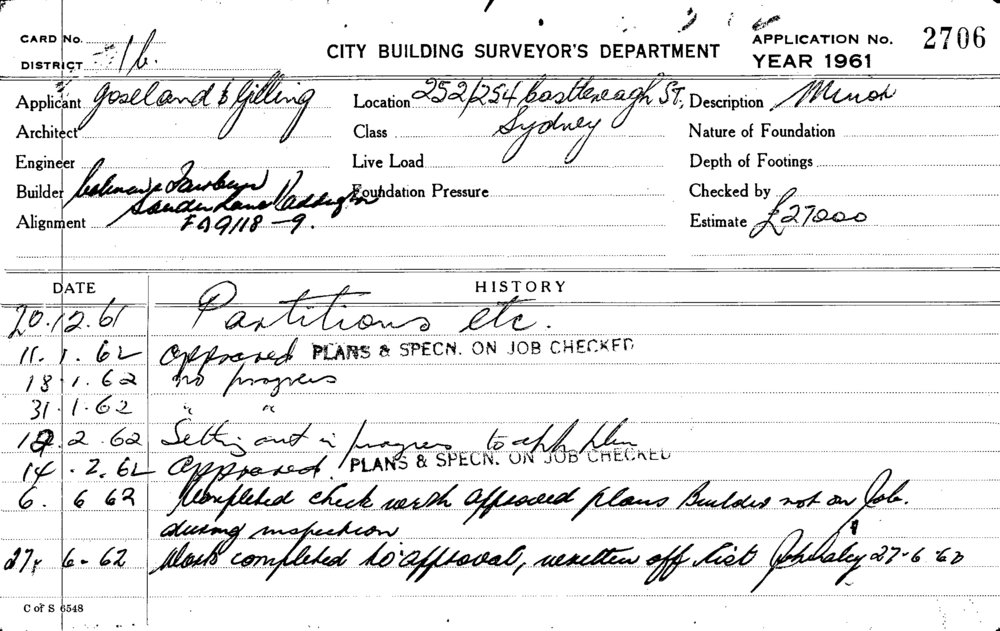 CARD No.
DISTRICT 16.
CITY BUILDING SURVEYOR'S DEPARTMENT
APPLICATION No. 2706
YEAR 1961
Applicant Goseland & Gilling
Location 252/254 Castlereagh St,
Sydney
Description Minor
Architect
Class
Nature of Foundation
Engineer
Live Load
Depth of Footings
Builder
Foundation Pressure
Checked by
Alignment FA9118-9.
Estimate £27000
DATE HISTORY
20.12.61 Partitions etc.
11.1.62 approved PLANS & SPECN. ON JOB CHECKED
18.1.62 no progress
31.1.62 " "
12.2.62 Setting out in progress to app plan
14.2.62 approved. PLANS & SPECN. ON JOB CHECKED
6. 6 62 Completed check with approved plans Builder not on Job.
during inspection
27. 6-62 Work completed to approval, written off list 27-6-62
C of S 6548